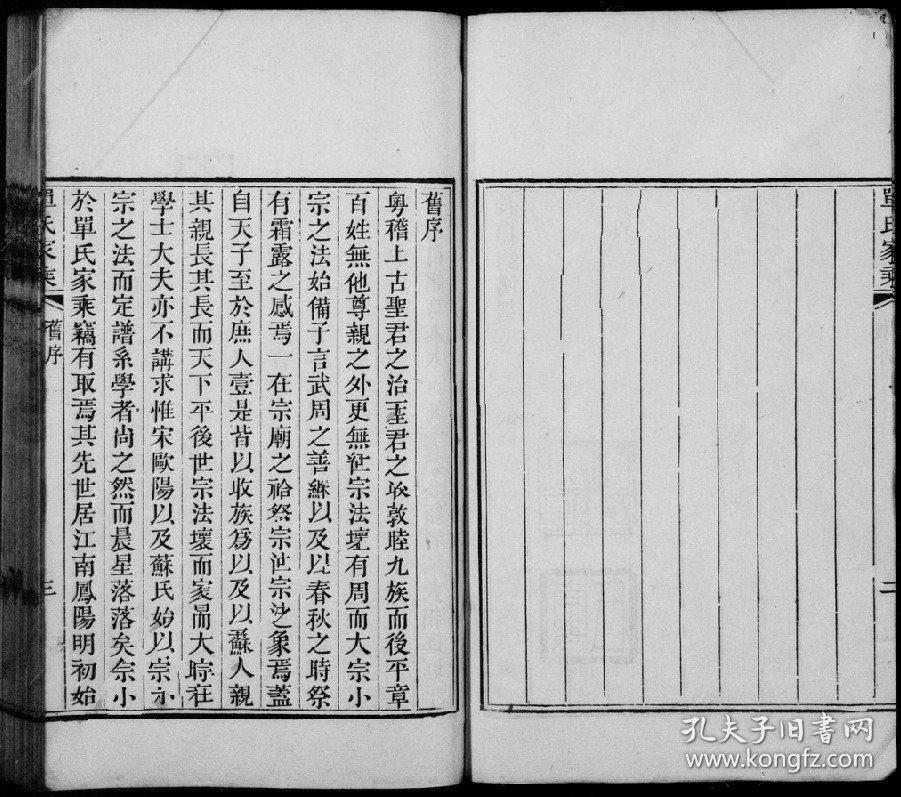 單氏家乘
二
舊序
粤稽上古聖君之治
君之
敦睦九族而後平章
百姓無他尊親之外更無
宗法壞有周而大宗小
宗之法始備子言武周之善繼以及以春秋之時祭
有霜露之感焉一在宗廟之祫祭宗
宗
之象焉蓋
自天子至於庶人壹是皆以收族爲以及以
人親
其親長其長而天下平後世宗法壞而家
大時在
學士大夫亦不講求惟宋歐陽以及蘇氏始以宗小
宗之法而定譜系學者尚之然而晨星落落矣余小
於單氏家乘竊有取焉其先世居江南鳳陽明初始
單氏家乘
舊序
三
孔夫子旧书网
www.kongfz.com